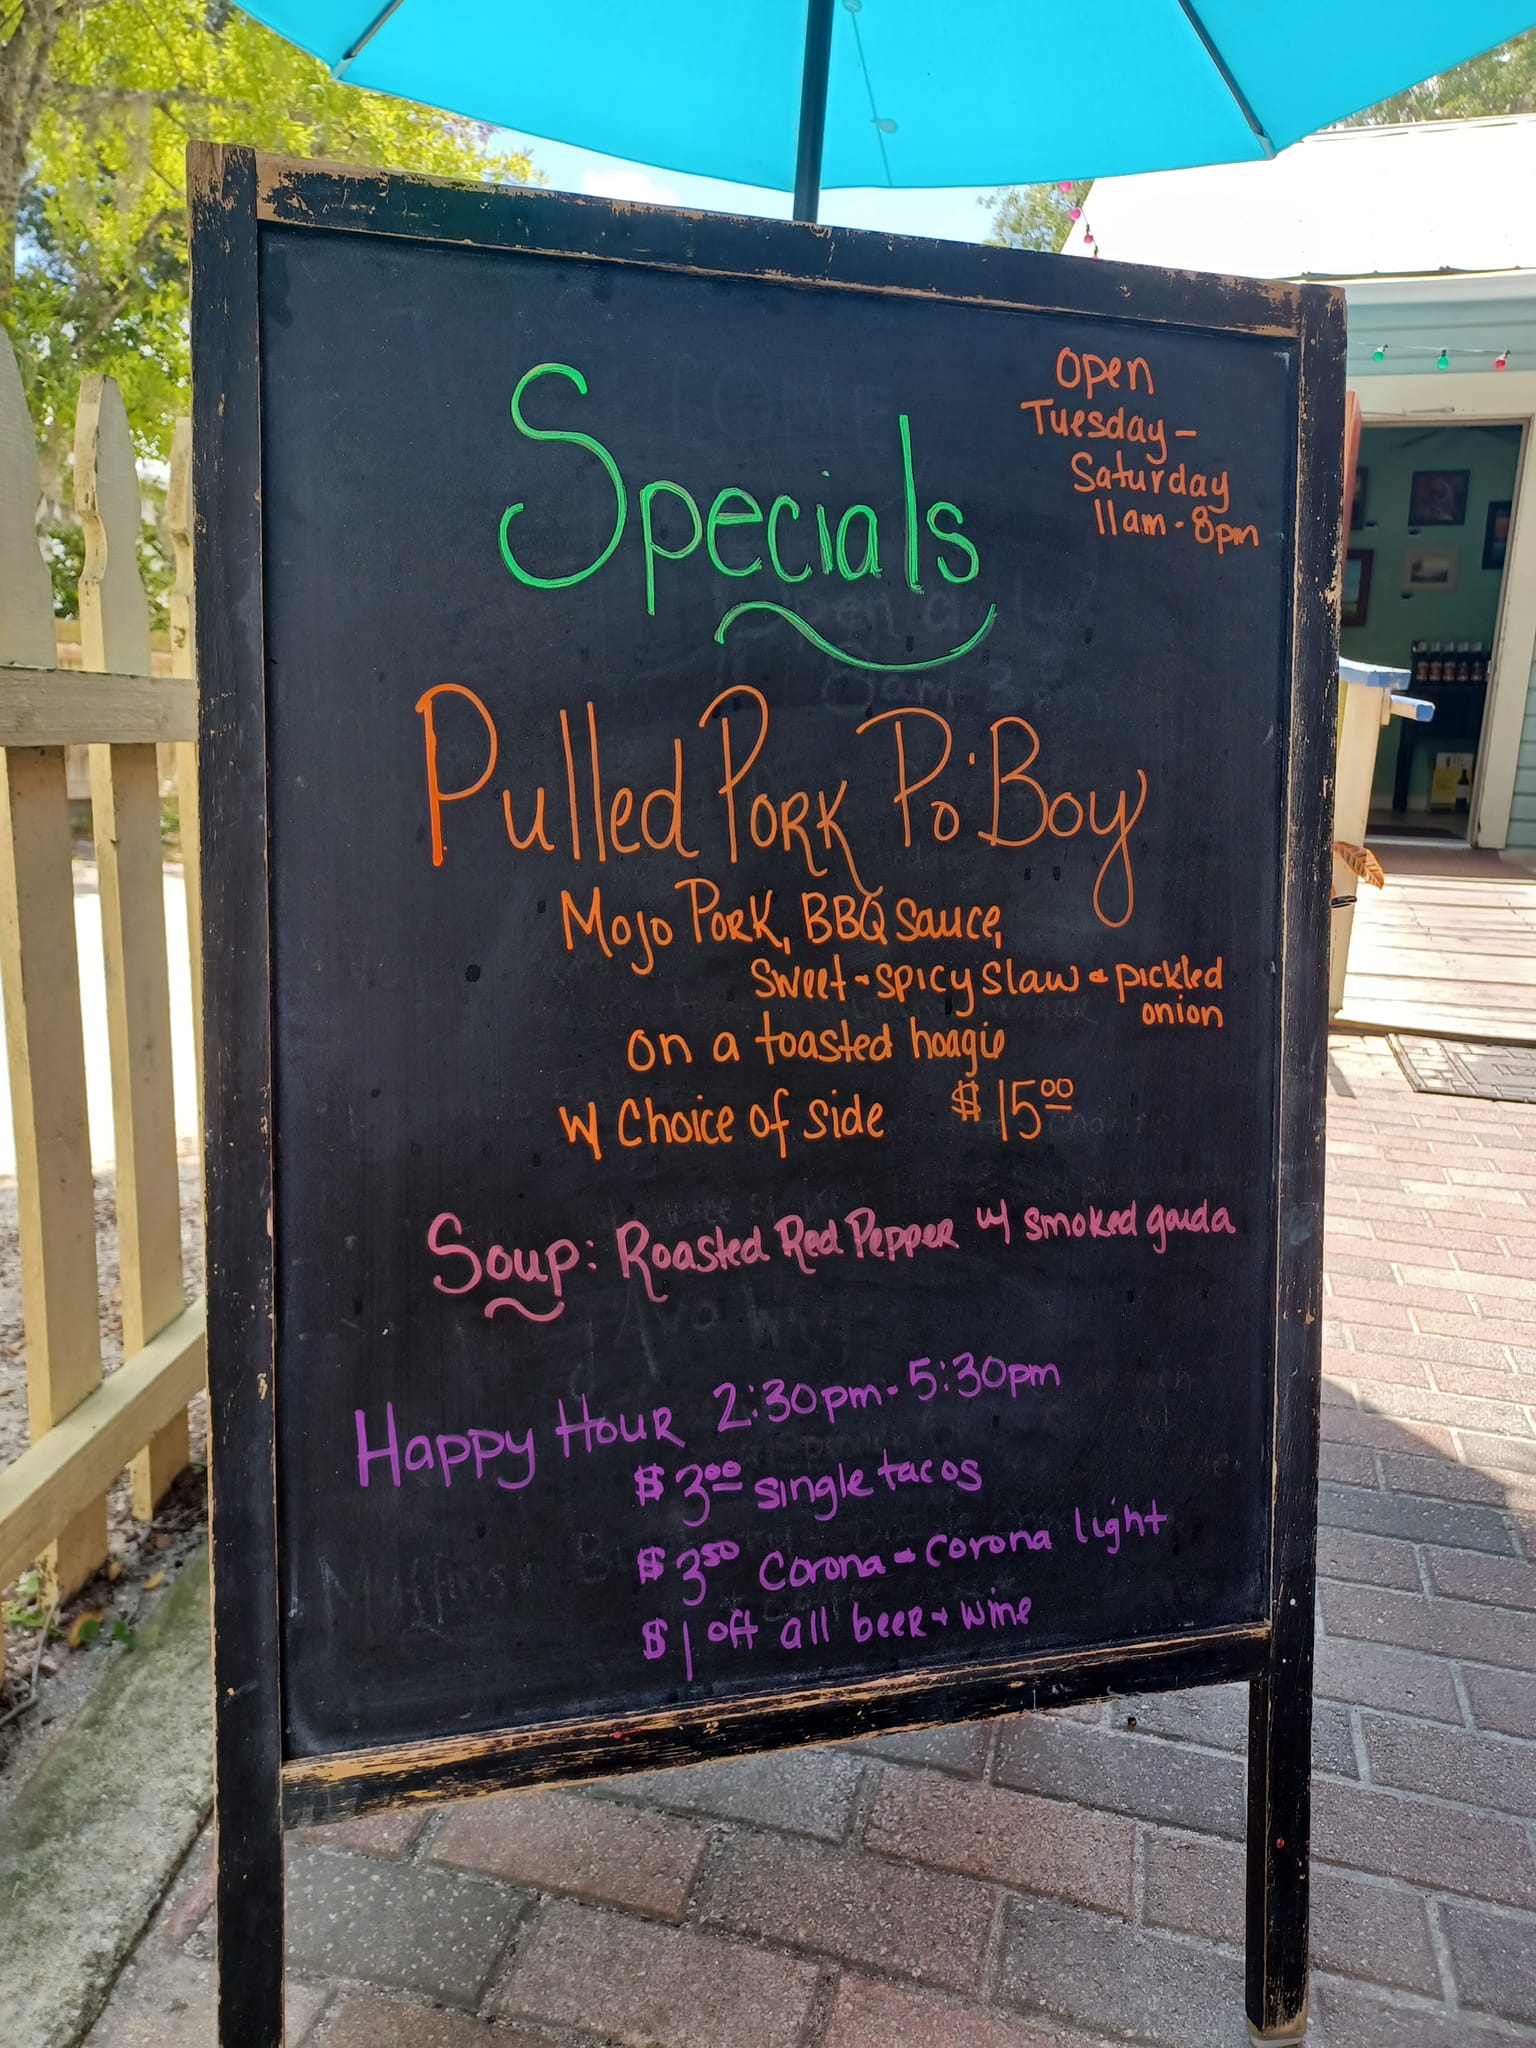 Specials
Open
Tuesday -
Saturday
11am - 8pm
Pulled Pork Po'Boy
Mojo Pork, BBQ sauce,
sweet & spicy slaw & pickled
onion
on a toasted hoagie
w/ Choice of side $15.00
Soup: Roasted Red Pepper w/ smoked gouda
Happy Hour 2:30pm - 5:30pm
$3.00 single tacos
$3.50 Corona & Corona light
$1 off all beer & wine